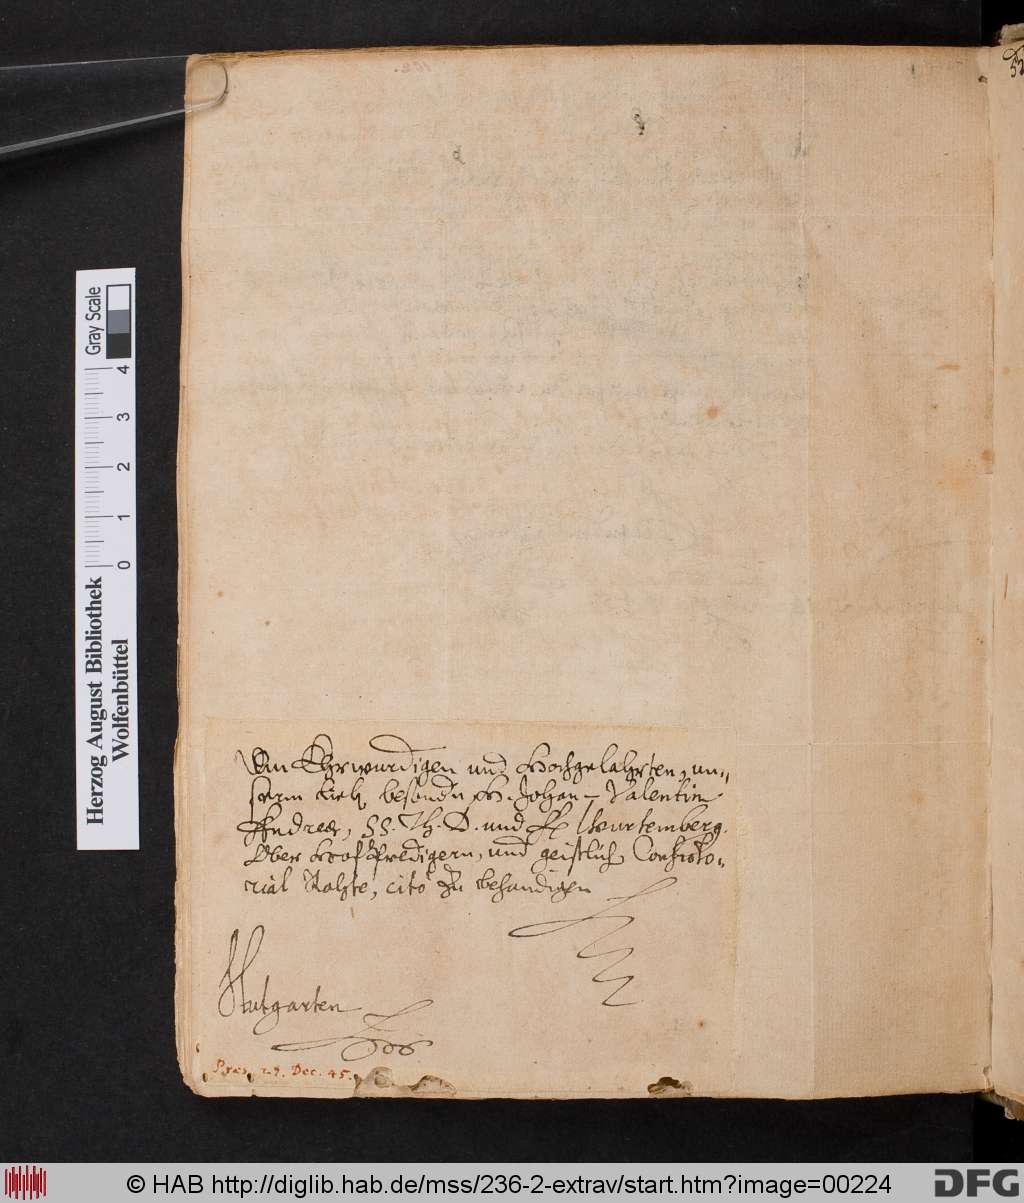 52
102.
Dem Ehrwürdigen und Hochgelahrten, un=
serm lieb. besondn H. Johan Valentin
Andreæ, SS. Th. D. und Fl. Wurtemberg.
Ober Hof Predigern, und geistlich. Consisto,
rial Rahte, cito zu behandigen
Stutgarten
Præs. 27. Dec. 45.
Herzog August Bibliothek
Wolfenbüttel
0 1 2 3 4
Gray Scale
© HAB http://diglib.hab.de/mss/236-2-extrav/start.htm?image=00224
DFG